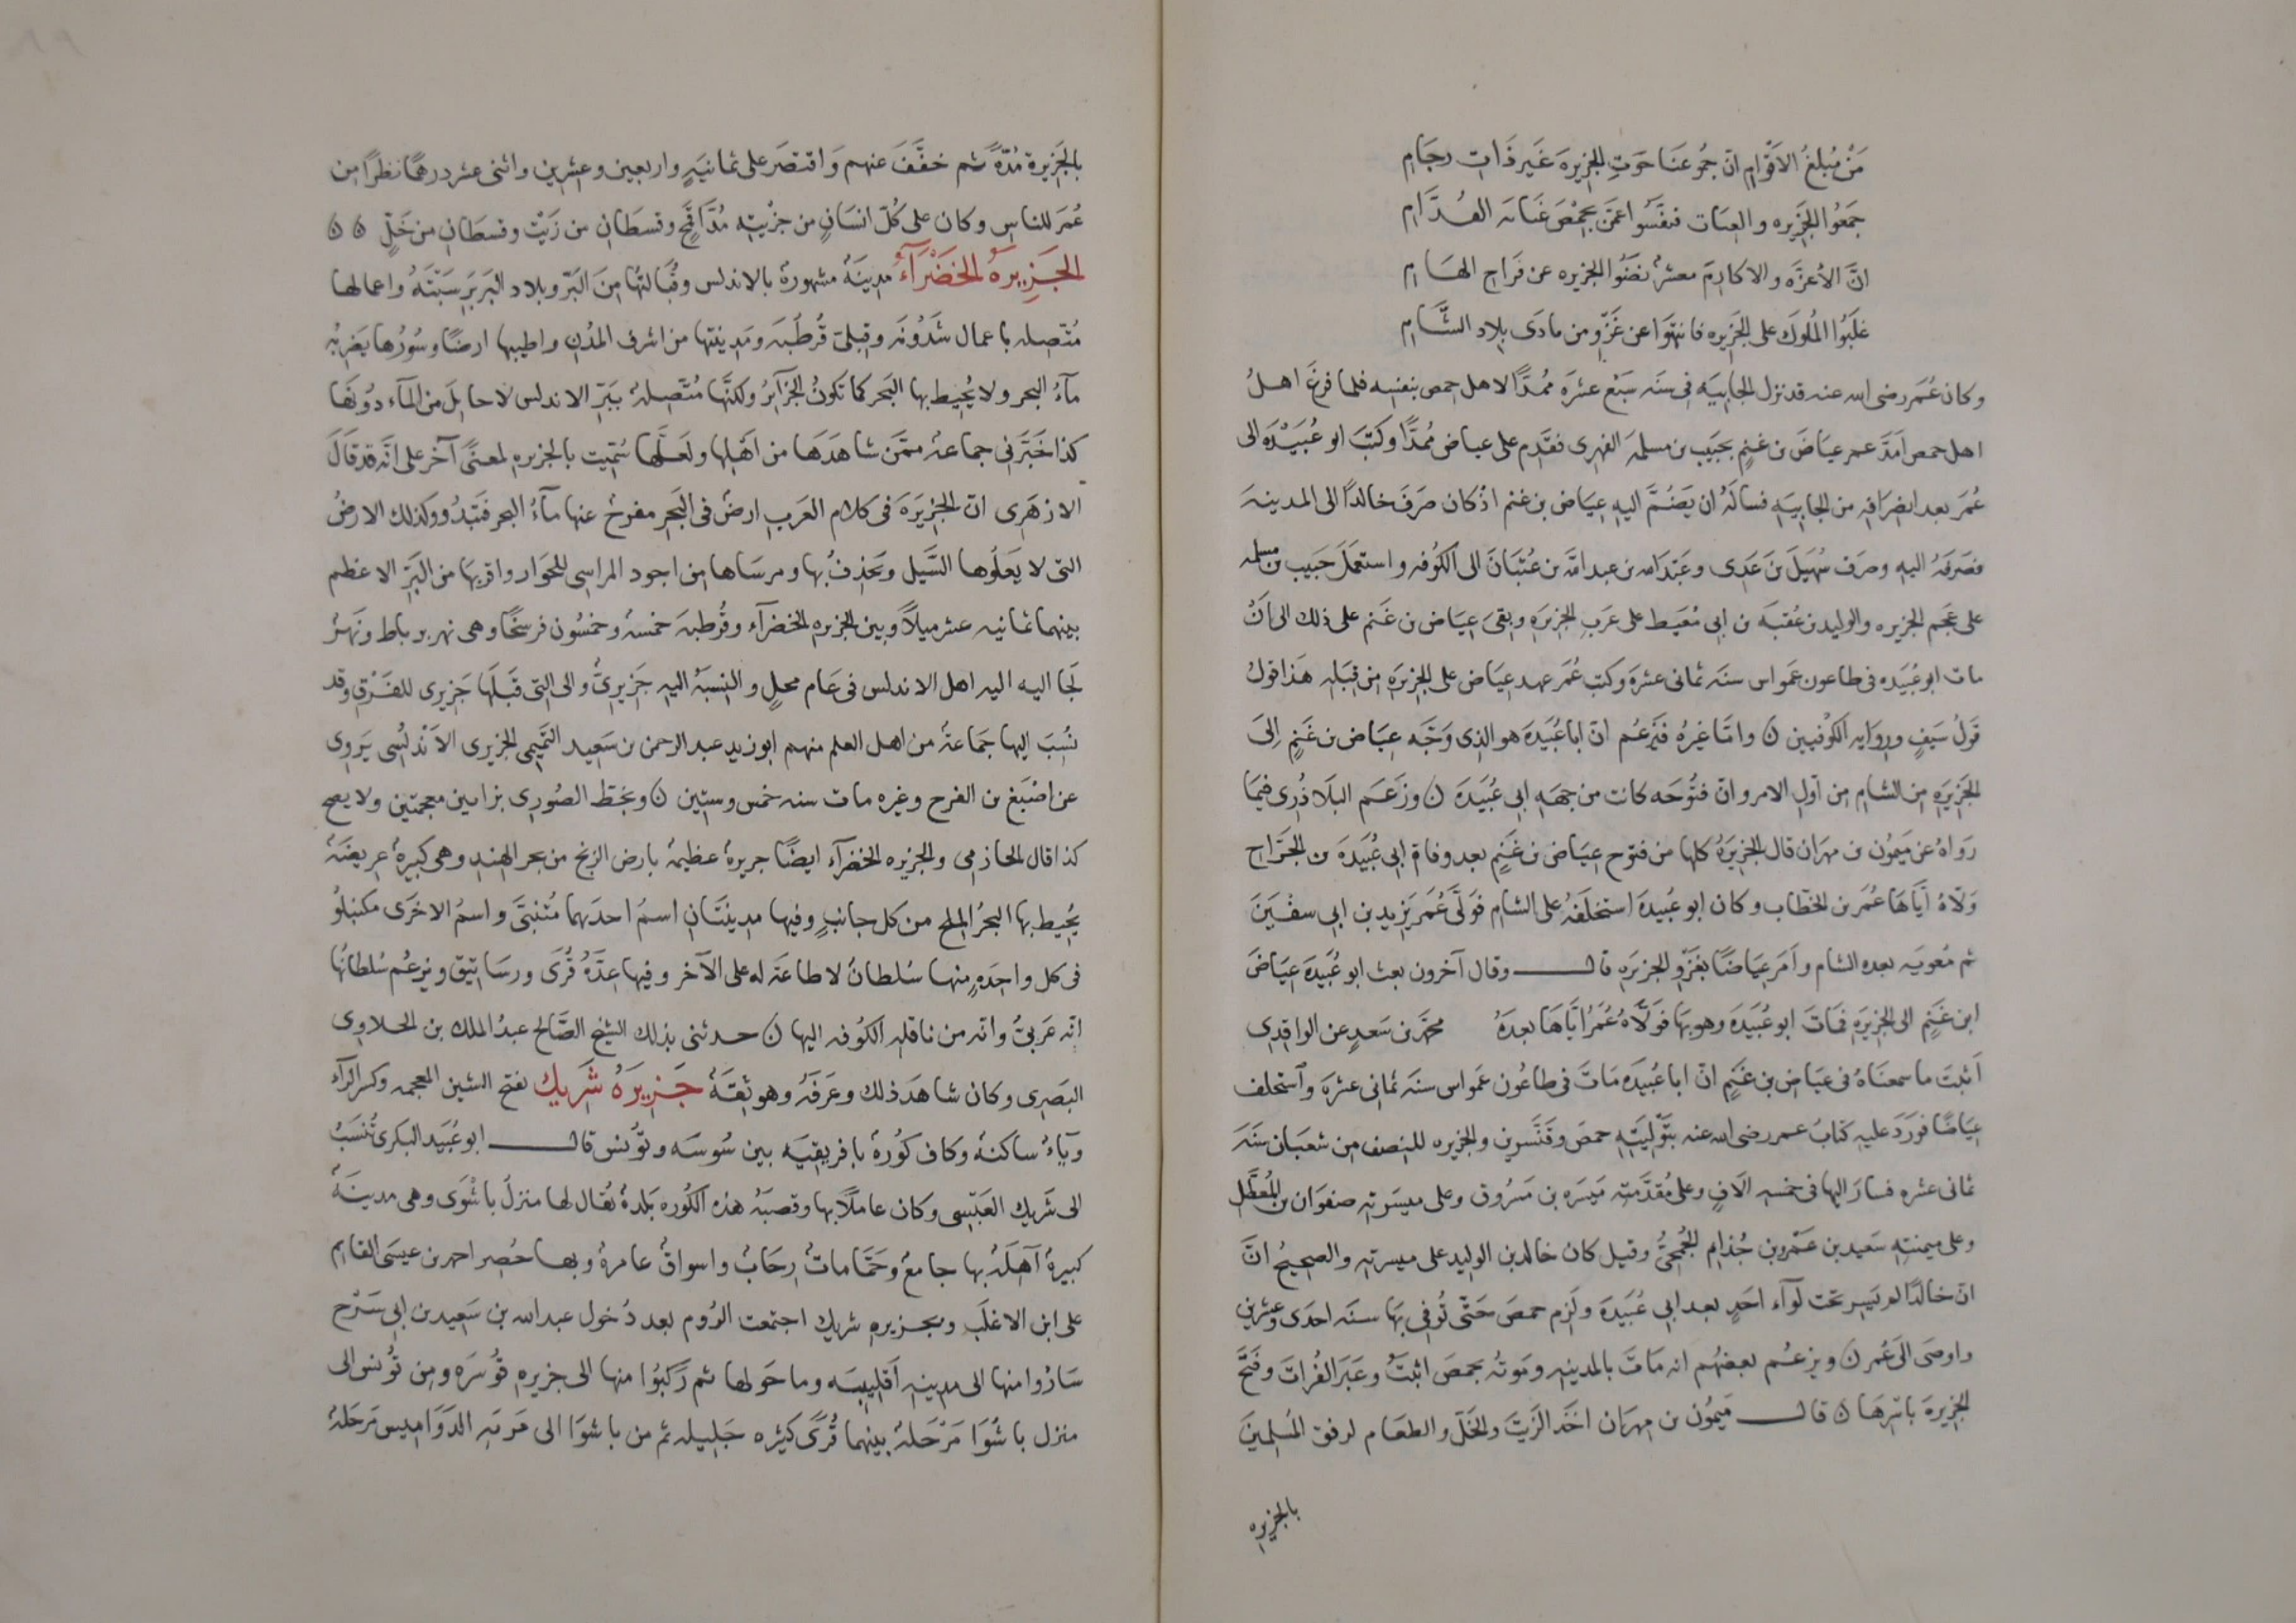 مَنْ مُبلغُ الاَقْوَامِ انّ جمُوعنَا حَوَتِ الجزيرةَ غَير ذَاتِ رجَامِ
جمَعُوا الجَزيره والعبات فنفَّسُوا عمَّن بحمْصَ غَيابة القُدَّامِ
انَّ الأعزَّه والاكارمَ معشرٌ نضَوا الجزيره عن فَراج الهَامِ
غلَبُوا المُلوكَ على الجَزيره فانتهَوَا عن غَزْوِ من مادَى بلاد الشَّامِ
وكان عُمَر رضى الله عنه قد نزل الجَابيَه فى سنَه سَبْع عشرَه مُمدًّا لاهل حمص بنفسه فلما فرغَ اهلُ
اهل حمص امَدَّ عمر عيَاضَ بن غنمٍ بحبيب بن مسلمةَ الفهرى فقَدِم على عياض مُمدًّا وكتبَ ابو عُبَيْدَه الى
عُمَر بعد انصرَافِه من الجابيَه فسالَهُ ان يَضُمَّ اليهِ عيَاض بن غنم اذْ كان صَرَفَ خالدًا الى المدينةَ
فصَرفَهُ اليهِ وصَرف سُهيَلَ بن عَدِى وعَبْد الله بن عبد الله بن عُتْبَانَ الى الكُوفه واستعمَلَ حَبيب بن مسلمه
على عجَم الجزيره والوليد بن عُقبَه بن ابى مُعَيط على عرَبِ الجزيَرِهِ وبقىَ عيَاض بن غَنم على ذلك الى اَنْ
مات ابو عُبَيده فى طاعون عمَواس سنَه ثمانى عشرَهَ وكتبَ عُمَر عهد عيَاض على الجزيَرِه من قِبَلِه هَذا قولُ
قَولُ سَيفٍ وروَايه الكوُفيين ن وامّا غيرهُ فيَزعُم انّ ابا عُبَيدَه هو الذى وَجَّه عيَاض بن غَنمٍ اِلىَ
الجَزيَرِه من الشام من اَول الامر وانّ فتُوحَه كانت من جهَهِ ابى عُبَيدَهَ ن وزعَم البلَاذُرى فيمَا
رَواهُ عن مَيمُون بن مهرَان قال الجزيَرَهُ كلها من فتوح عيَاض بن غَنمٍ بعد وفاه ابى عُبَيدَهَ بن الجرَّاحِ
وَلّاهُ ايَّاها عُمَر بن الخطّاب وكان ابو عُبَيدَه استخلَفَهُ على الشام فوَلَّى عُمَر يزيد بن ابى سفْيَنَ
ثم مُعويَه بعده الشام واَمَر عيَاضًا بغَزْو الجزيَرِه قال وقال آخرون بعث ابو عُبيدَه عيَاضَ
ابن غنَمٍ الى الجزيَرهِ فمَاتَ ابو عُبَيدَه وهو بهَا فَولَّاهُ عُمَرُ ايَّاهَا بعدَهُ محمّد بن سَعدٍ عن الواقدِى
اَثبَتَ ما سمعنَاهُ فى عيَاض بن غنَمٍ انّ ابا عُبيدَه مَاتَ فى طاعُون عمَواس سنَه ثمانى عشرَهَ واستخلف
عيَاضًا فورَدَ عليهِ كتابُ عمر رضى الله عنه بتَولِيَتهِ حمصَ وقنَّسرين والجزيره للنصف من شعبَان سنَهَ
ثمانى عشره فسَارَ اليها فى خمسهِ آلافٍ وعلى مُقدَّمتِه مَيسَره بن مَسرُوق وعلى ميسَرتهِ صفوَان بن المُعطَّل
وعلى ميمنتِهِ سَعيد بن عَمْرو بن جُذام الجُمَحىُّ وقيل كان خالد بن الوليد على ميسرتهِ والصحيحُ انَّ
انّ خالدًا لم يَسِر تحت لوآء احَدٍ بعد ابى عُبَيدَه ولزِم حمصَ حَتّى تُوفىَ بهَا سنَه احدَى وعشرين
واوصَى الى عُمَر ن ويزعُم بعضُهم انه مَاتَ بالمدينهِ ومَوتُه بحمصَ اثبتُ وعَبَر الفُراتَ وفتَح
الجزيرهَ باسرهَا ن قال مَيمُون بن مهرَان اخَذ الزَّيتَ والخَلّ والطعَام لرفق المُسلمينَ
بالجزيره
بالجَزيرة مُدّهً ثم خفَّفَ عنهم وَاقتصَر على ثمانيَهٍ واربعين وعشرين واثنى عشر درهمًا نظرًا من
عُمَر للناس وكان على كُلّ انسَانٍ من جزْيتِه مُدّا قمحٍ وقسطَان من زَيْتٍ وقسطَانِ من خَلٍّ ن ن
الجَزِيرَهُ الخَضْرَآءُ مدينَهٌ مشهورهٌ بالاندلس وقُبالتُها من البَرّ وبلاد البَربَر سَبْتَهُ واعمالها
مُتصله باعمال شَذُونَه وقبلىَ قُرطُبَه ومَدينتها من اشرف المدُن واطيبها ارضًا وسُورُها يَضربُه
مآءُ البحر ولا يُحيط بها البَحر كما تكونُ الجَزآئرُ ولكنَّها مُتصِلهٌ ببَرّ الاندلس لا حايلَ من المآء دُونَهَا
كذا خبَّرَنى جماعهٌ ممَّن شاهَدَهَا من اهْلِها ولعَلَّها سُمّيت بالجزيره لمعنًى آخَر على انَّه قد قالَ
الازهَرى انّ الجزيرَهَ فى كلام العَرب ارضٌ فى البَحر مفرجٌ عنها مآءُ البحر فتبدُو وكذلك الارضُ
التى لا يَعلُوها السَّيل ويُحذِفُ بها ومرسَاها من اجود المراسى للجَواز واقربهَا من البَرّ الاعظم
بينهما ثمانيه عشر ميلًا وبين الجزيره الخضرآء وقُرطبَه خمسهٌ وخمسُون فرسخًا وهى نهر برباط ونَهَرٌ
لجَا اليه اليه اهل الاندلس فى عَام محلٍ والنِسبَهُ اليه جَزيرىٌّ والى التى قَبلَها جَزيرى للفَرْق وقد
نُسبَ اليها جَمَاعهٌ من اهل العلم منهم ابو زيد عبد الرحمن بن سَعيد التَّميمى الجزيرى الاَندْلُسى يَروى
عن اصْبَغ بن الفرج وغيره مات سنه خمس وستين ن وبخطّ الصُورى بزابين معجمتين ولا يصح
كذا قال الحازمى والجزيره الخضرآء ايضًا جريرهٌ عظيمهٌ بارض الزنج من بحر الهند وهى كبيرهٌ عريضَهٌ
يُحيط بها البحرُ الملح من كل جانبٍ وفيها مدينتَانِ اسمُ احدَيهما مُتنبّىَ واسمُ الاخرَى مكنبلوُ
فى كل واحِدَهٍ منها سُلطانٌ لا طاعَه له على الآخر وفيها عِدَّهُ قُرًى ورسَاتيق ويزعُم سُلطانُها
انّه عَربىٌّ وانّه من ناقلهِ الكُوفه اليها ن حدثنى بذلك الشيخ الصَّالح عبدُ الملك بن الحلاوى
البَصرِى وكان شاهَد ذلك وعَرفَهُ وهو ثقَهٌ جَزِيرَهُ شَرِيك بفتح الشين المعجمه وكسر الرآء
ويآءٌ ساكنهٌ وكاف كُورهٌ بافريقيَه بين سُوسَه وتُونس قال ابو عُبَيد البكرى تُنسَبُ
الى شَريك العَبْسى وكان عاملًا بها وقصبَهُ هذه الكُوره بَلدهٌ يُقال لها منزلُ باشْوَى وهى مدينَهٌ
كبيرهٌ آهِلَهٌ بها جامعٌ وحَمَّاماتٌ ورحَابٌ واسواقٌ عامرهٌ وبها حُصِر احمد بن عيسَى القايم
على ابن الاغلَب وبجزيره شريك اجتمعت الرُوم بعد دُخول عبد الله بن سَعيد بن ابى سَرْح
سَارُوا منها الى مدينهِ اَقليبيَه وما حَولها ثم رَكبُوا منها الى جزيره قَوُسَره ومن تُونس الى
منزل باشُوَا مَرْحَلهٌ بينهما قُرًى كثيره جَليله ثم من باشُوَا الى قرية الدَوَاميس مَرحَلهٌ